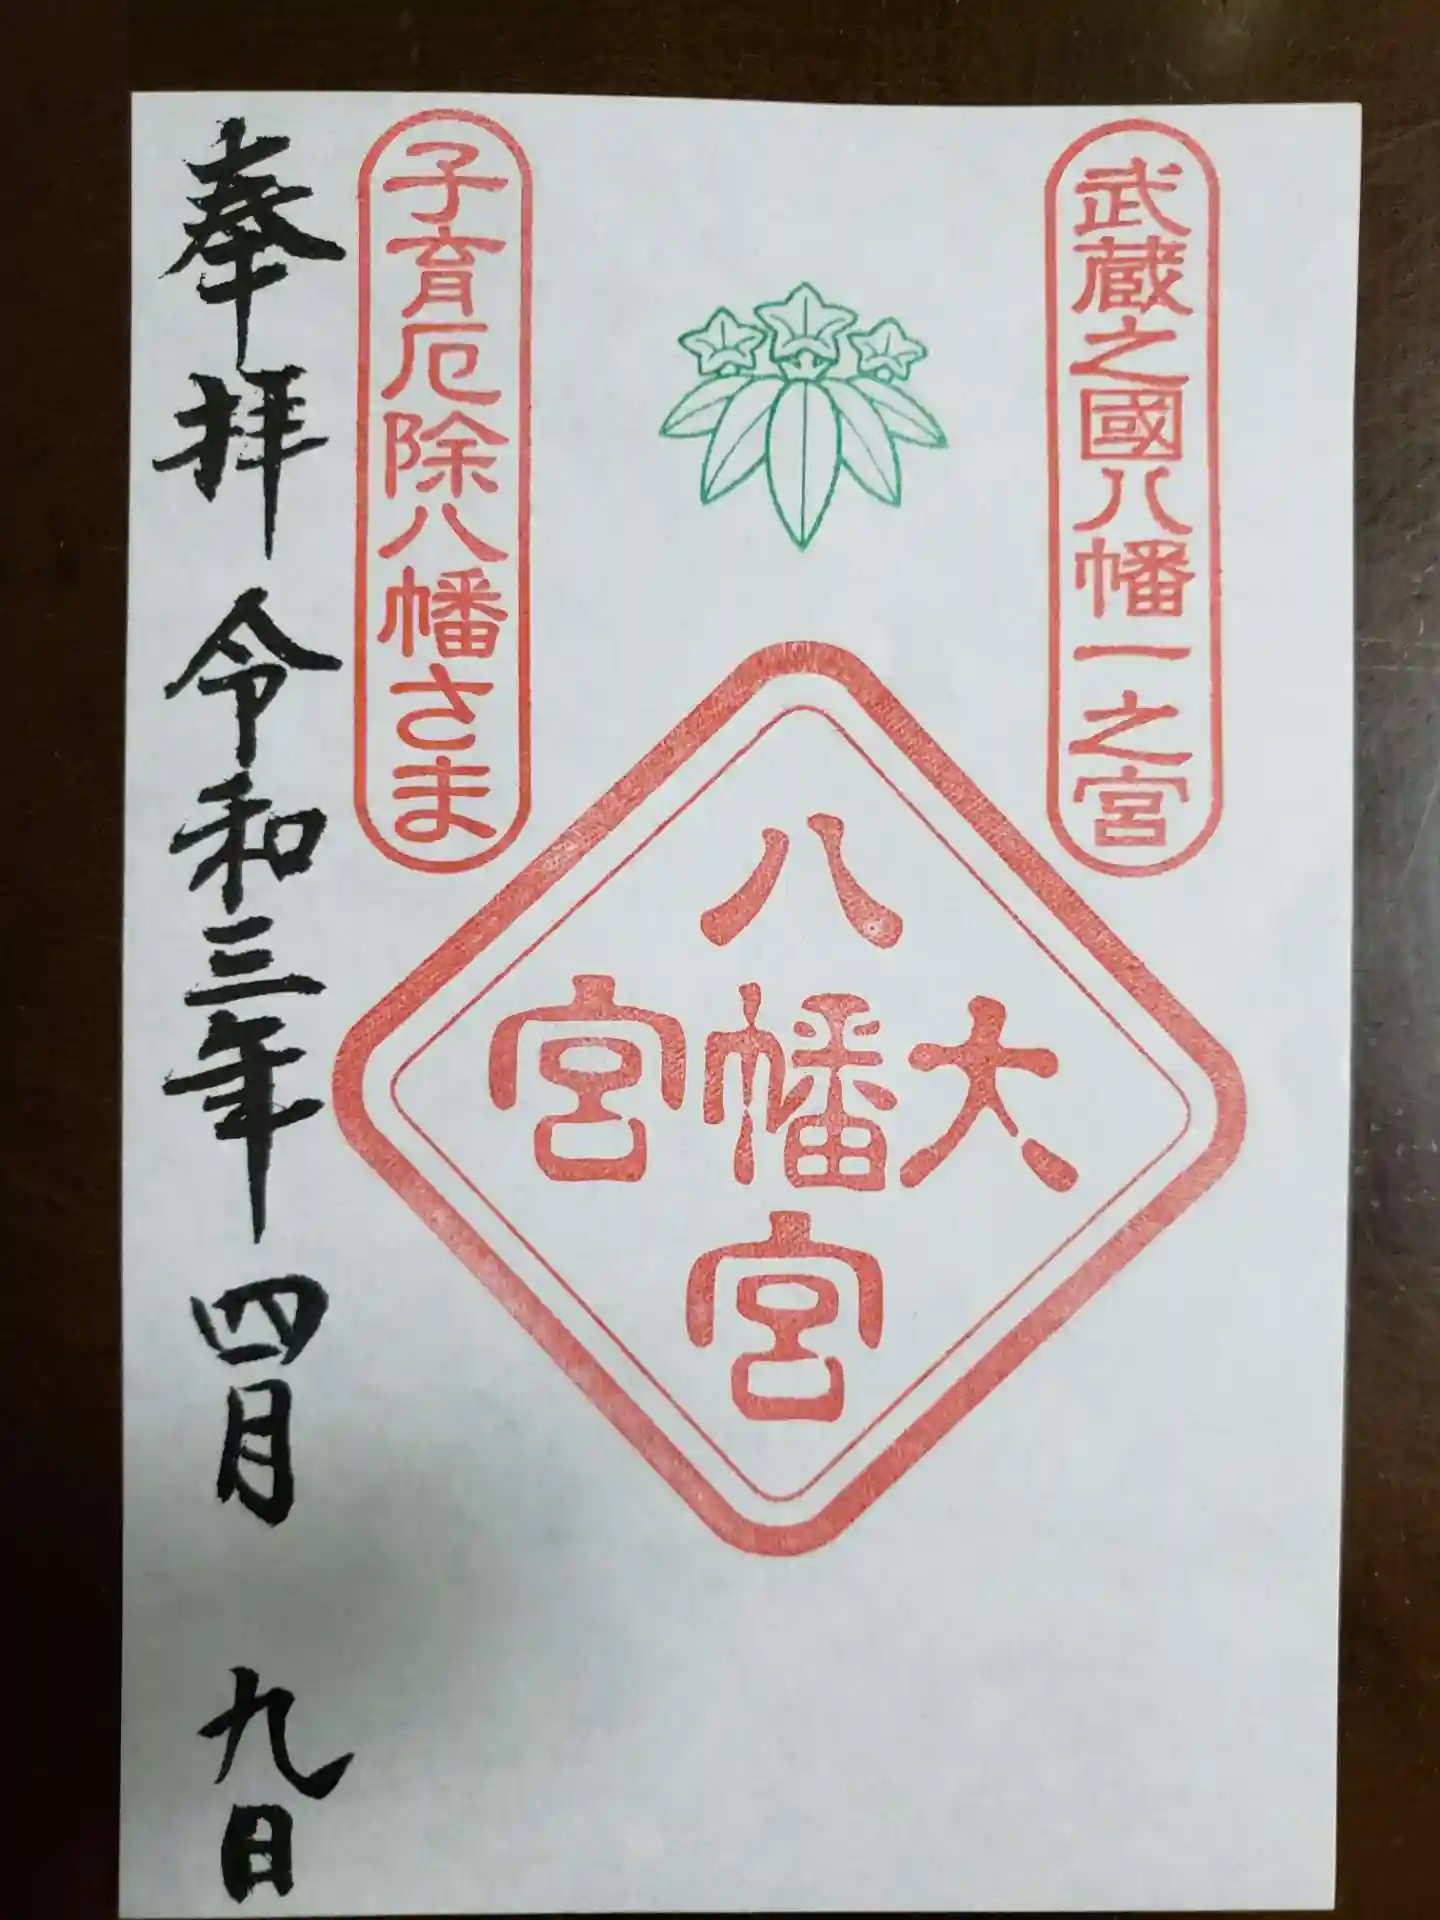 武蔵之國八幡一之宮
八幡宮
大幡宮
子育厄除八幡さま
奉拝 令和三年 四月 九日